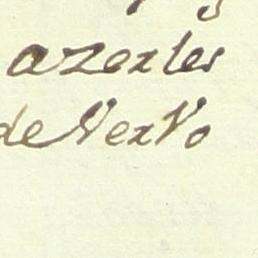 azerles
de Nervo